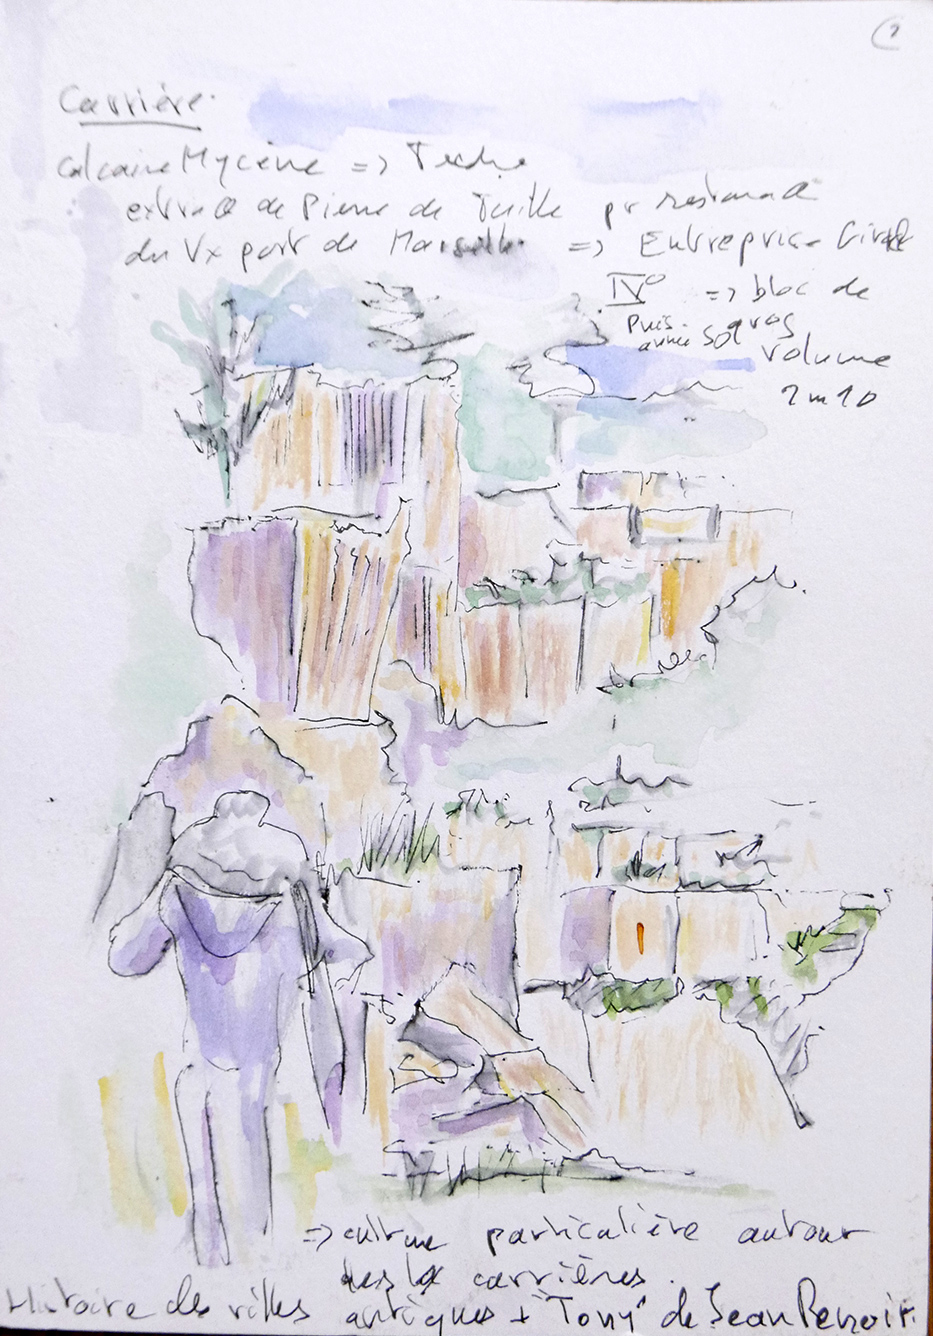 Carrière.
calcaire Mycène =>
extra de Pierre de Taille pr
du Vx port de Marseille => Entreprise
IV° => bloc de
Puis. gros
sol volume
2m10
=> culture particulière autour
des carrières.
Histoire des villes antiques + "Tony" de Jean Renoir.